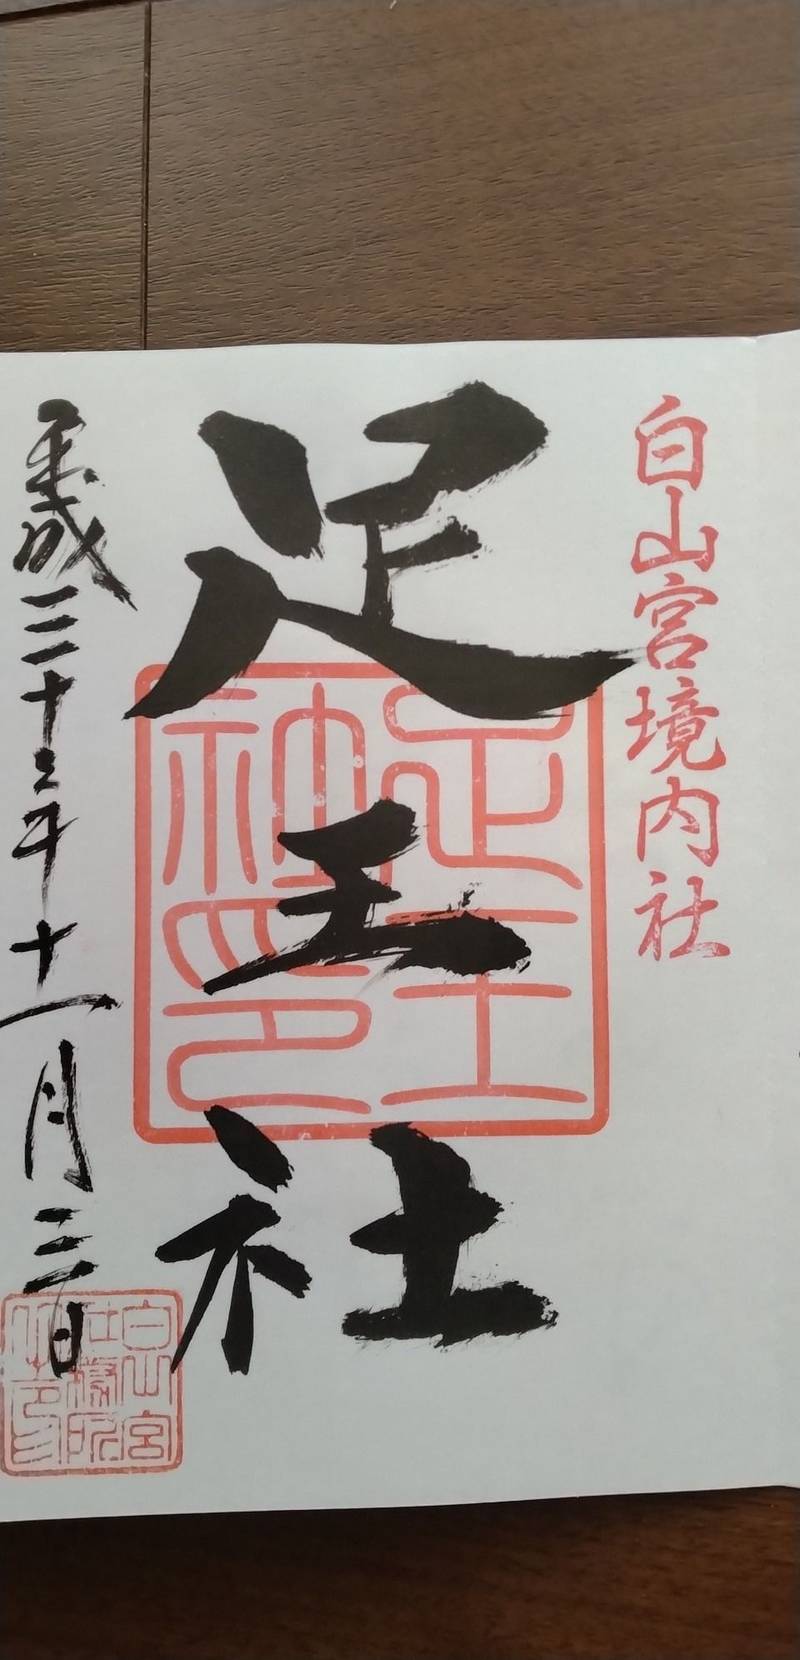 白山宮境内社
足王社
足王
神印
平成三十年十一月三日
白山宮
社務所
之印